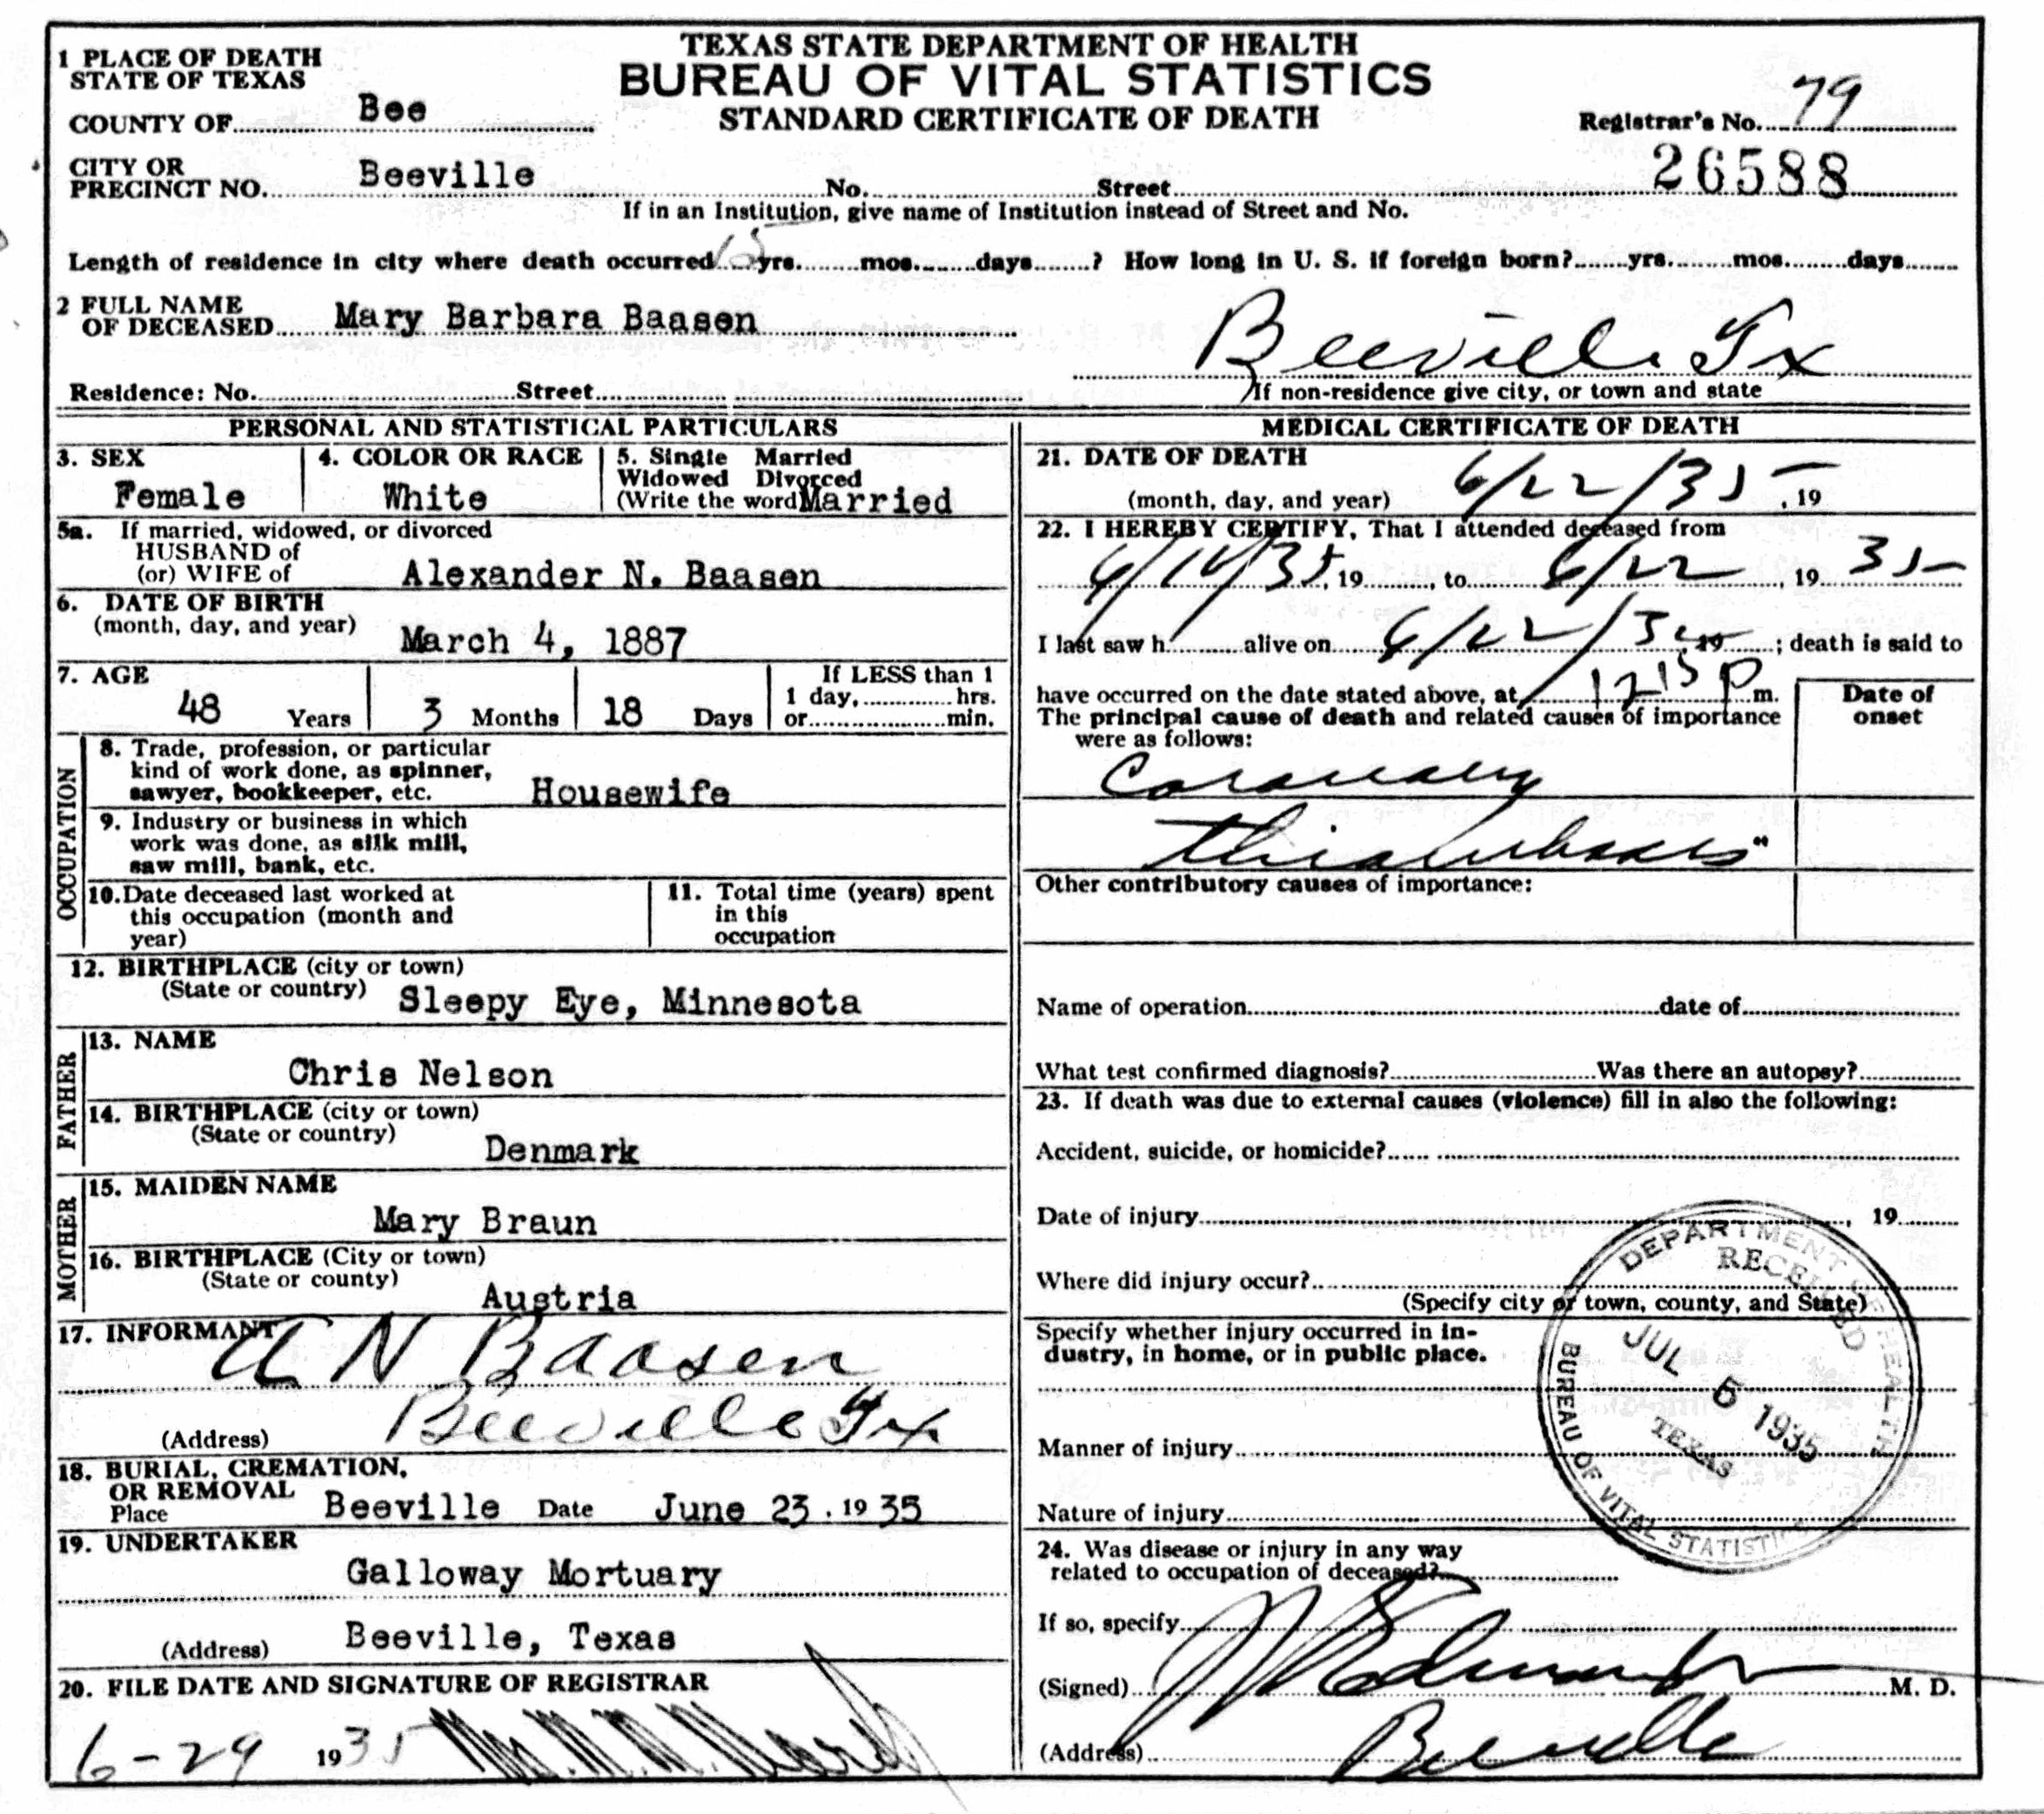 TEXAS STATE DEPARTMENT OF HEALTH
BUREAU OF VITAL STATISTICS
STANDARD CERTIFICATE OF DEATH
1 PLACE OF DEATH
STATE OF TEXAS
COUNTY OF Bee
Registrar's No. 79
26588
CITY OR
PRECINCT NO. Beeville No. Street
If in an Institution, give name of Institution instead of Street and No.
Length of residence in city where death occurred 15 yrs. mos. days ? How long in U. S. if foreign born? yrs. mos. days
2 FULL NAME
OF DECEASED Mary Barbara Baasen
Beeville Tx
Residence: No. Street
If non-residence give city, or town and state
PERSONAL AND STATISTICAL PARTICULARS
3. SEX
Female
4. COLOR OR RACE
White
5. Single Married
Widowed Divorced
(Write the word) Married
5a. If married, widowed, or divorced
HUSBAND of
(or) WIFE of Alexander N. Baasen
6. DATE OF BIRTH
(month, day, and year) March 4, 1887
7. AGE
48 Years 3 Months 18 Days
If LESS than 1
1 day, hrs.
or min.
OCCUPATION
8. Trade, profession, or particular
kind of work done, as spinner,
sawyer, bookkeeper, etc. Housewife
9. Industry or business in which
work was done, as silk mill,
saw mill, bank, etc.
10. Date deceased last worked at
this occupation (month and
year)
11. Total time (years) spent
in this
occupation
12. BIRTHPLACE (city or town)
(State or country) Sleepy Eye, Minnesota
FATHER
13. NAME
Chris Nelson
14. BIRTHPLACE (city or town)
(State or country) Denmark
MOTHER
15. MAIDEN NAME
Mary Braun
16. BIRTHPLACE (City or town)
(State or county) Austria
17. INFORMANT A N Baasen
(Address) Beeville Tx
18. BURIAL, CREMATION,
OR REMOVAL
Place Beeville Date June 23, 1935
19. UNDERTAKER
Galloway Mortuary
(Address) Beeville, Texas
20. FILE DATE AND SIGNATURE OF REGISTRAR
6-29 1935
MEDICAL CERTIFICATE OF DEATH
21. DATE OF DEATH
(month, day, and year) 6/22/35, 19
22. I HEREBY CERTIFY, That I attended deceased from
6/14/35, 19, to 6/22, 19 35
I last saw h alive on 6/22/35, 19; death is said to
have occurred on the date stated above, at 1215 P m.
The principal cause of death and related causes of importance
were as follows:
Date of
onset
Coronary
Other contributory causes of importance:
Name of operation date of
What test confirmed diagnosis? Was there an autopsy?
23. If death was due to external causes (violence) fill in also the following:
Accident, suicide, or homicide?
Date of injury , 19
Where did injury occur?
(Specify city or town, county, and State)
Specify whether injury occurred in in-
dustry, in home, or in public place.
Manner of injury
Nature of injury
24. Was disease or injury in any way
related to occupation of deceased?
If so, specify
(Signed) M. D.
(Address) Beeville
DEPARTMENT OF HEALTH
RECEIVED
JUL 5 1935
TEXAS
BUREAU OF VITAL STATISTICS